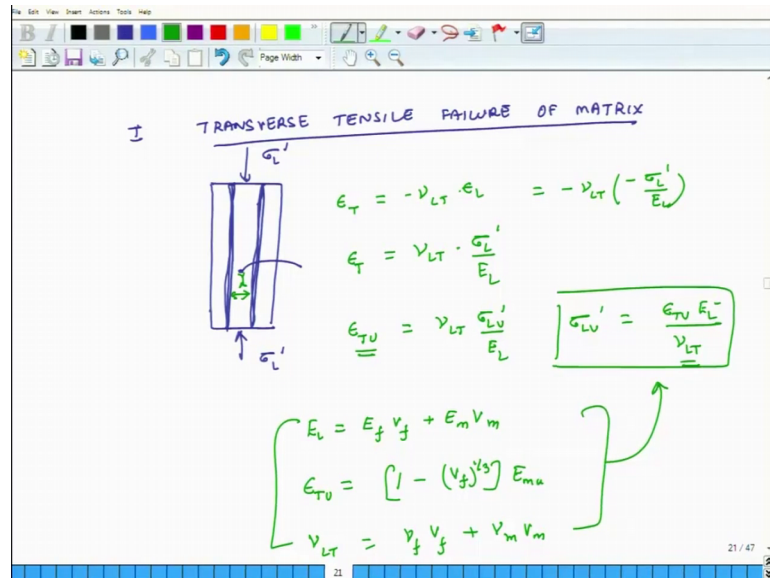 File Edit View Insert Actions Tools Help
B I
Page Width
I TRANSVERSE TENSILE FAILURE OF MATRIX
σ_L'
ϵ_T = -ν_LT · ϵ_L = -ν_LT (-σ_L'/E_L)
ϵ_T = ν_LT · σ_L'/E_L
ϵ_TU = ν_LT σ_LU'/E_L
σ_LU' = ϵ_TU E_L/ν_LT
σ_L'
E_L = E_f V_f + E_m V_m
ϵ_TU = [1 - (V_f)^1/3] E_mu
ν_LT = ν_f V_f + ν_m V_m
21 / 47
21